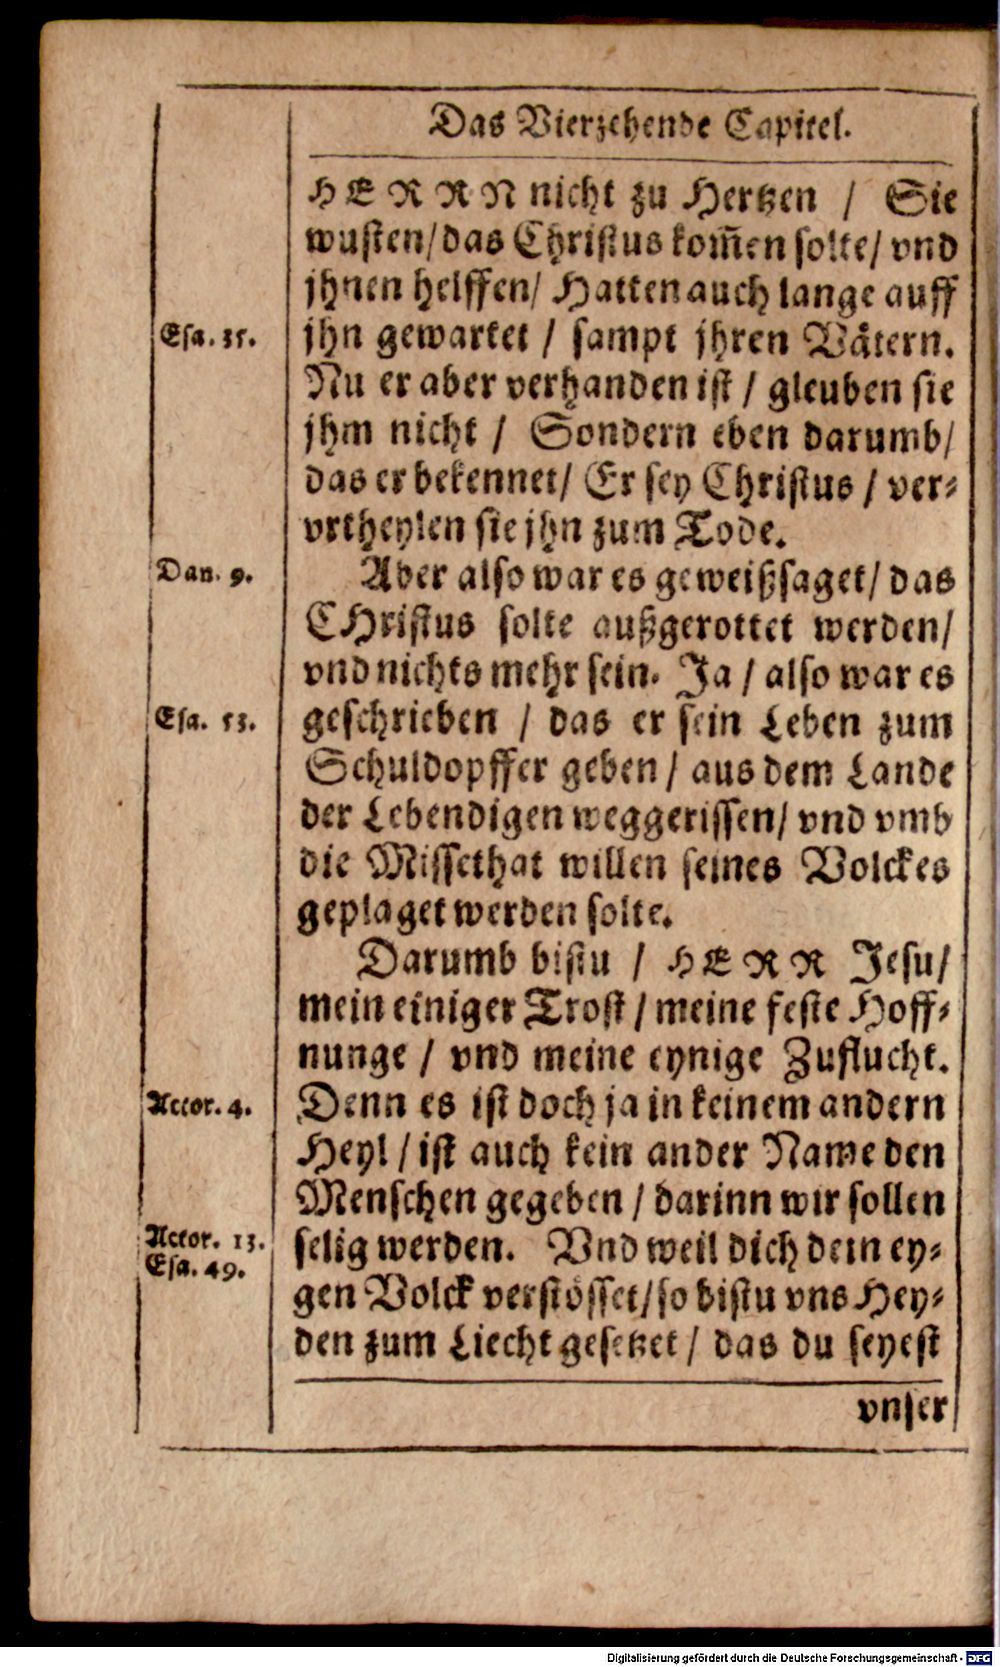 Das Vierzehende Capitel.
HERRN nicht zu Hertzen / Sie
wusten/das Christus kom̃en solte/ vnd
jhnen helffen/ Hatten auch lange auff
Esa. 35.
jhn gewartet / sampt jhren Vätern.
Nu er aber verhanden ist / gleuben sie
jhm nicht / Sondern eben darumb/
das er bekennet/ Er sey Christus / ver⸗
vrtheylen sie jhn zum Tode.
Dan. 9.
Aber also war es geweißsaget/ das
CHristus solte außgerottet werden/
vnd nichts mehr sein. Ja / also war es
Esa. 53.
geschrieben / das er sein Leben zum
Schuldopffer geben / aus dem Lande
der Lebendigen weggerissen/ vnd vmb
die Missethat willen seines Volckes
geplaget werden solte.
Darumb bistu / HERR Jesu/
mein einiger Trost / meine feste Hoff⸗
nunge / vnd meine eynige Zuflucht.
Actor. 4.
Denn es ist doch ja in keinem andern
Heyl / ist auch kein ander Name den
Menschen gegeben / darinn wir sollen
Actor. 13.
Esa. 49.
selig werden. Vnd weil dich dein ey⸗
gen Volck verstösset/so bistu vns Hey⸗
den zum Liecht gesetzet / das du seyest
vnser
Digitalisierung gefördert durch die Deutsche Forschungsgemeinschaft - DFG